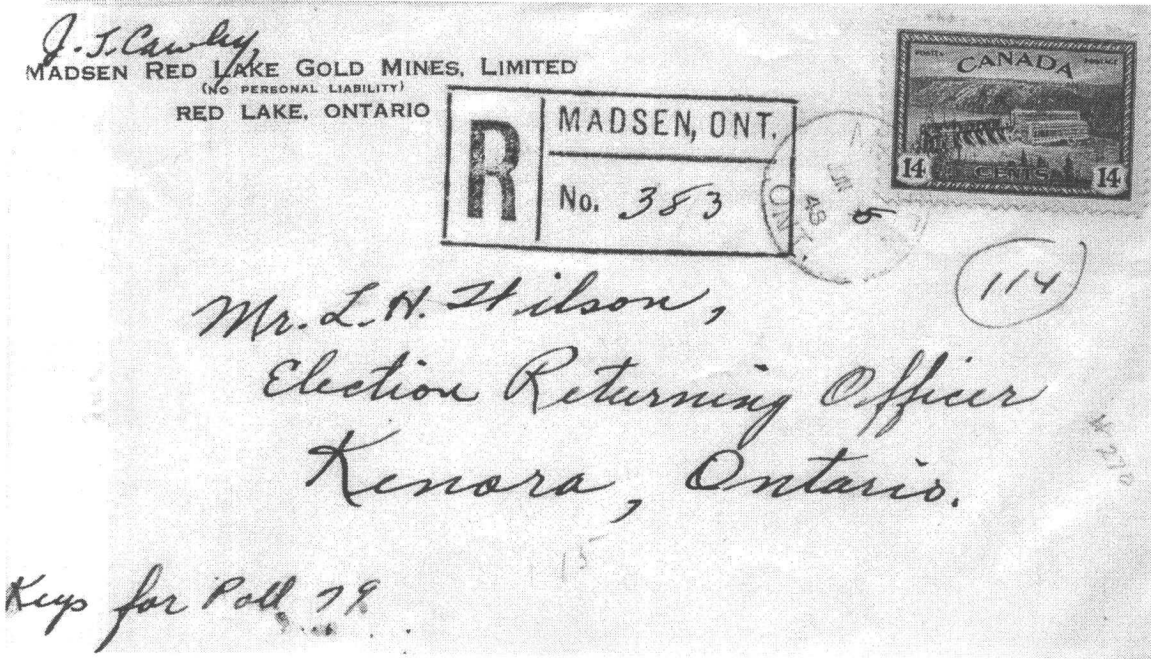 J. T. Cawley
MADSEN RED LAKE GOLD MINES, LIMITED
(NO PERSONAL LIABILITY)
RED LAKE, ONTARIO
R
MADSEN, ONT.
No. 383
ONT.
JUN
5
48
POSTES POSTAGE
CANADA
14 CENTS 14
114
Mr. L. H. Wilson,
Election Returning Officer
Kenora, Ontario.
15
Keys for Poll 79